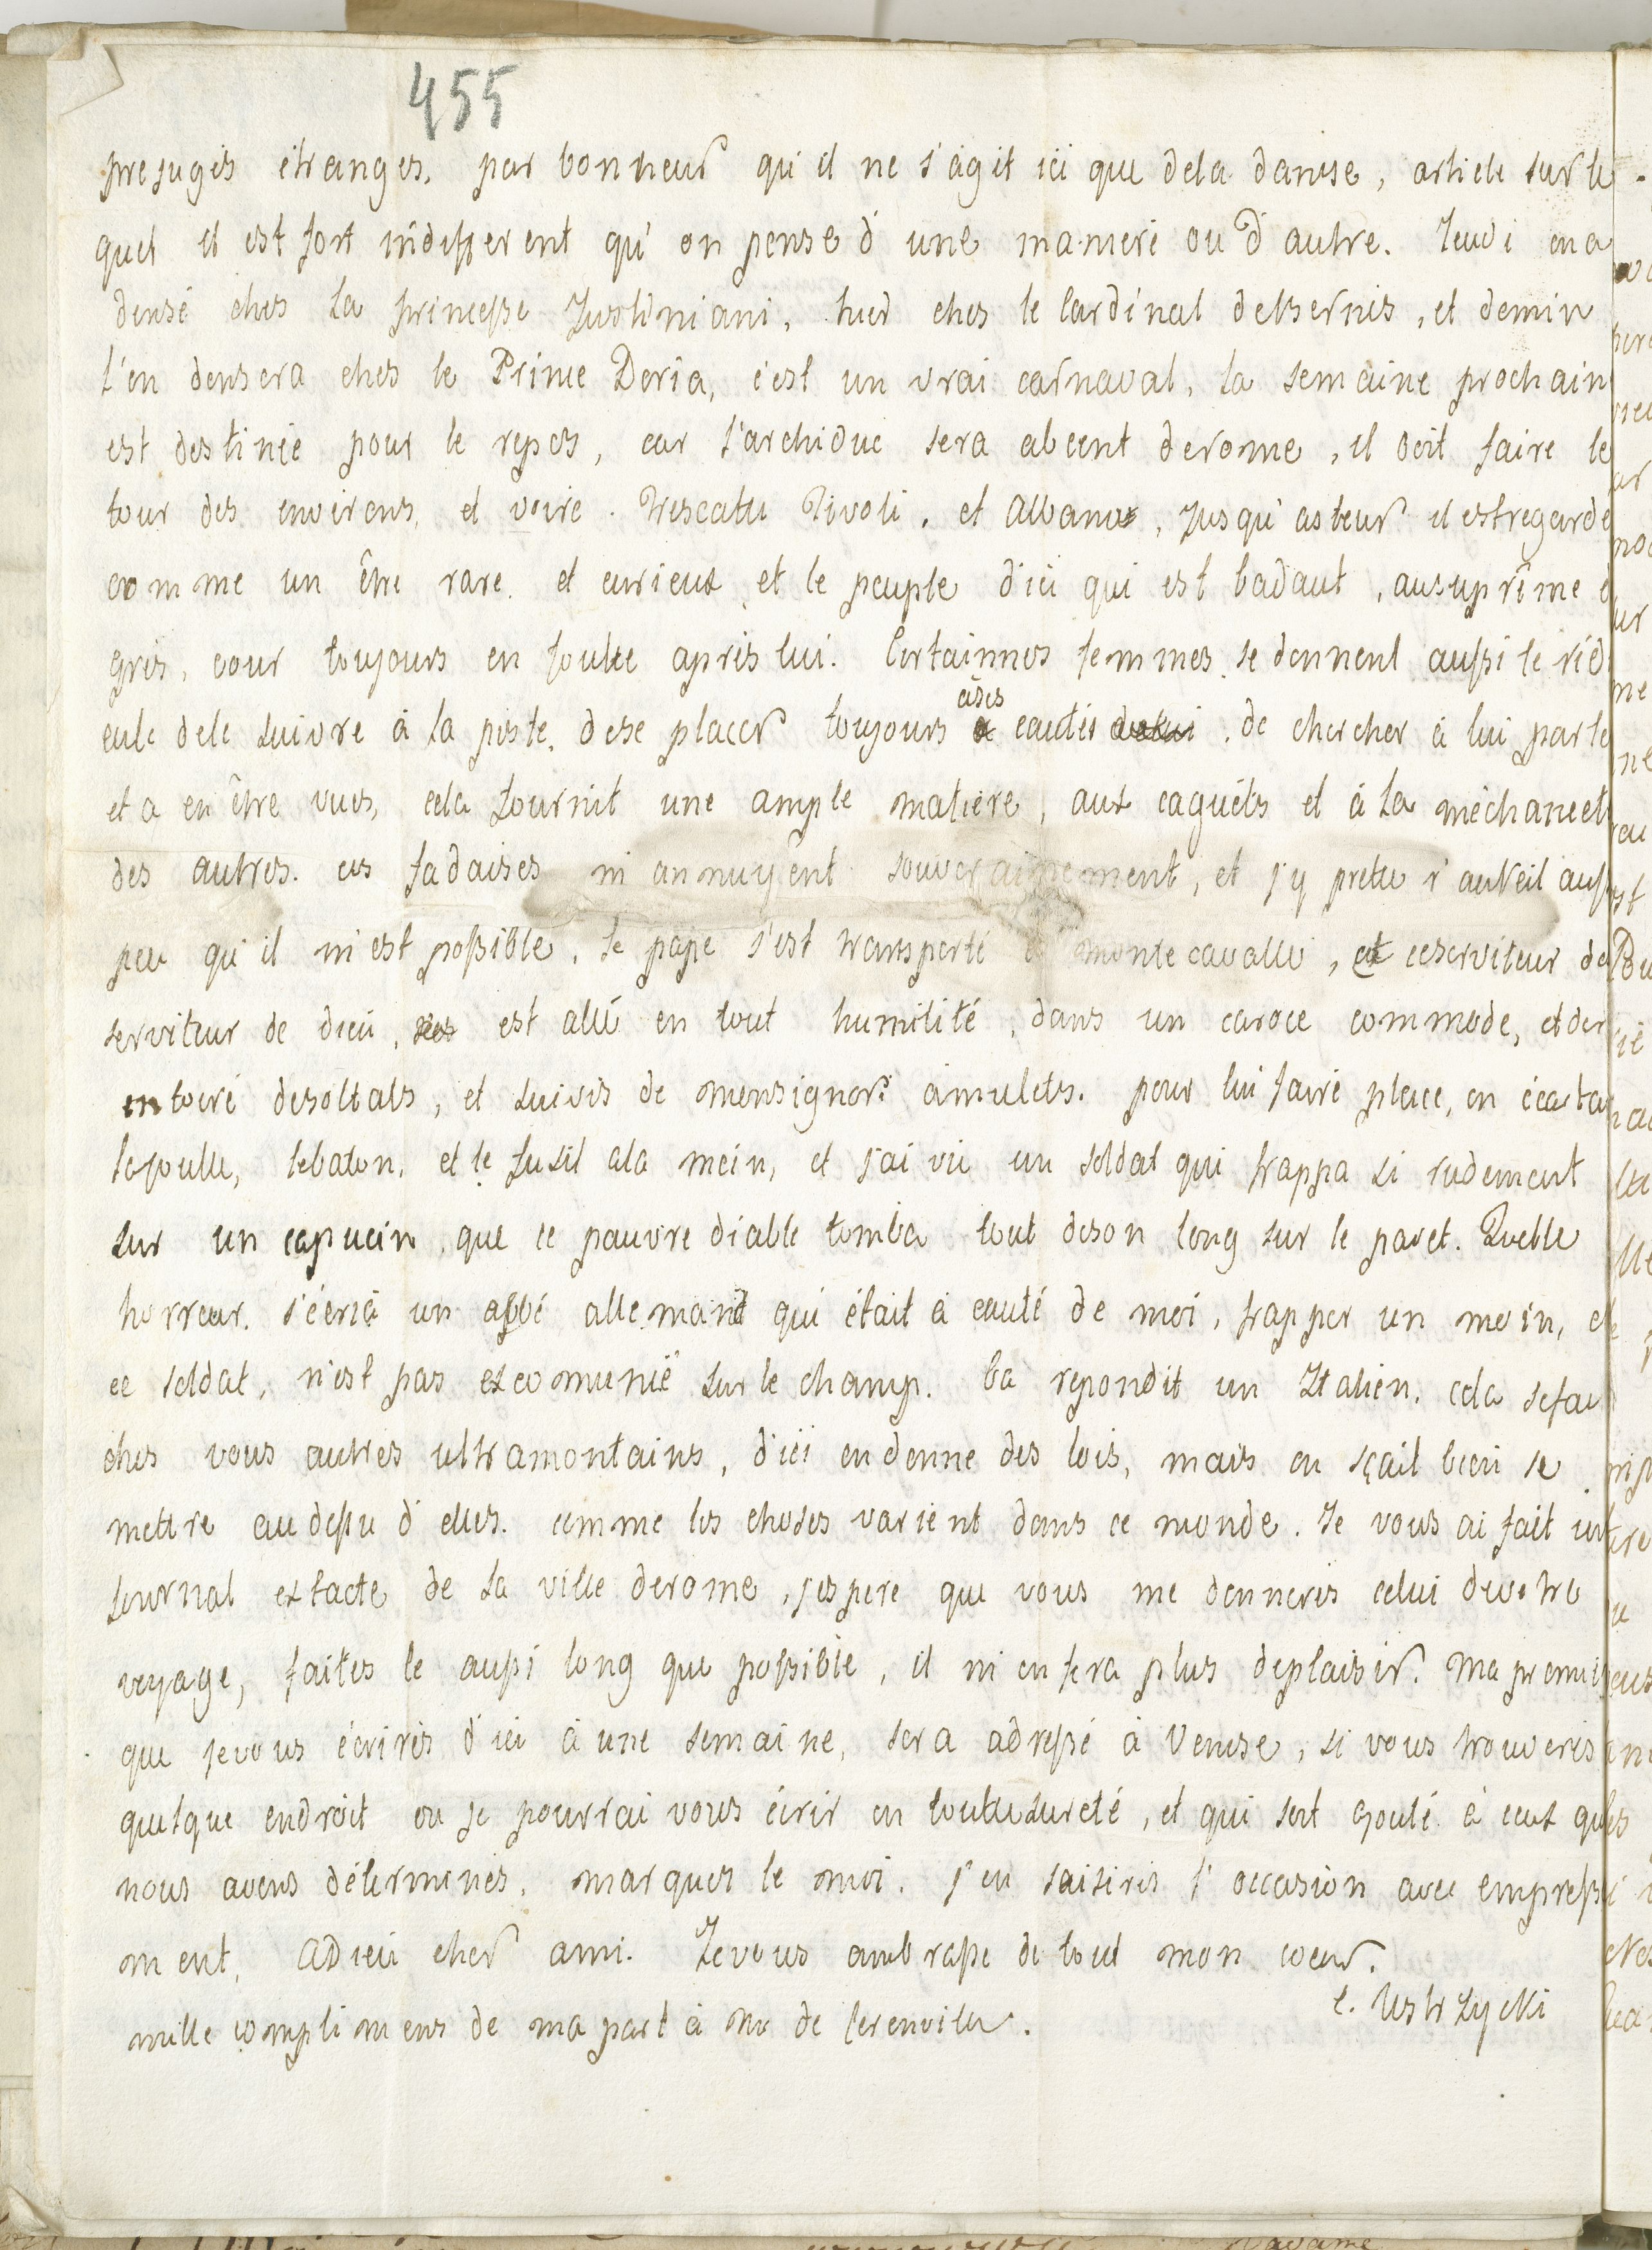 455
prejugés étranges. par bonheur qu'il ne s'agit ici que dela danse, article sur le
quel il est fort indifferent qu'on pense d'une maniere ou d'autre. Jeudi on a
densé ches la princesse Justiniani, hier ches le Cardinal deBernis, et demin
l'on densera ches le Prince Doria, c'est un vrai carnaval, la semaine prochain
est destinée pour le repos, car l'archiduc sera abcent derome, il doit faire le
tour des environs, et voire Frescatti Tivoli, et Albano, Jusqu'asteur il estregardé
comme un être rare et curieux et le peuple d'ici qui est badaut, ausuprême
gres, cour toujours en foulle après lui. Certainnes femmes se donnent aussi le rédi
cule dele suivre à la piste, dese placer toujours àses cautés, de chercher à lui parle
et a en être vues, cela fournit une ample matiere, aux caquéts et à la méchancete
des autres. ces fadaises m'annuyent souverainement, et j'y prette l'aureil aussi
peu qu'il m'est possible, le pape s'est transporté à montecavallo, et ceserviteur de
serviteur de dieu, est allé en tout humilité, dans un caroce commode,
entouré desoltats, et suivis de monsignori amulets. pour lui faire place, on écarta
lafoulle, lebaton, et le fusil ala mein, et j'ai vu un soldat qui frappa si rudement
sur un capucin que ce pauvre diable tomba tout deson long sur le pavet. Quelle
horreur s'écria un abbé allemand qui était à cauté de moi, frapper un moin, et
ce soldat, n'est pas excomunié sur le champ. ba repondit un Italien, cela sefai
ches vous autres ultramontains, d'ici on donne des lois, mais on sçait bien se
mettre audessu d'elles. comme les choses varient dans ce monde. Je vous ai fait un
journal extacte de la ville derome, j'espere que vous me donneres celui devotre
voyage, faites le aussi long que possible, il m'en fera plus deplaisir. Ma premie
que jevous écrires d'ici à une semaine, sera adressé à Venise, si vous trouveres
quelque endroit ou je pourrai vous écrir en toutesureté, et qui soit ajouté à ceux que
nous avons déterminés, marques le moi. j'en saisires l'occasion avec empresse
ment, Adieu cher ami. Jevous ambrasse de tout mon coeur.
C. Ustrzycki
mille complimens de ma part à Mr de